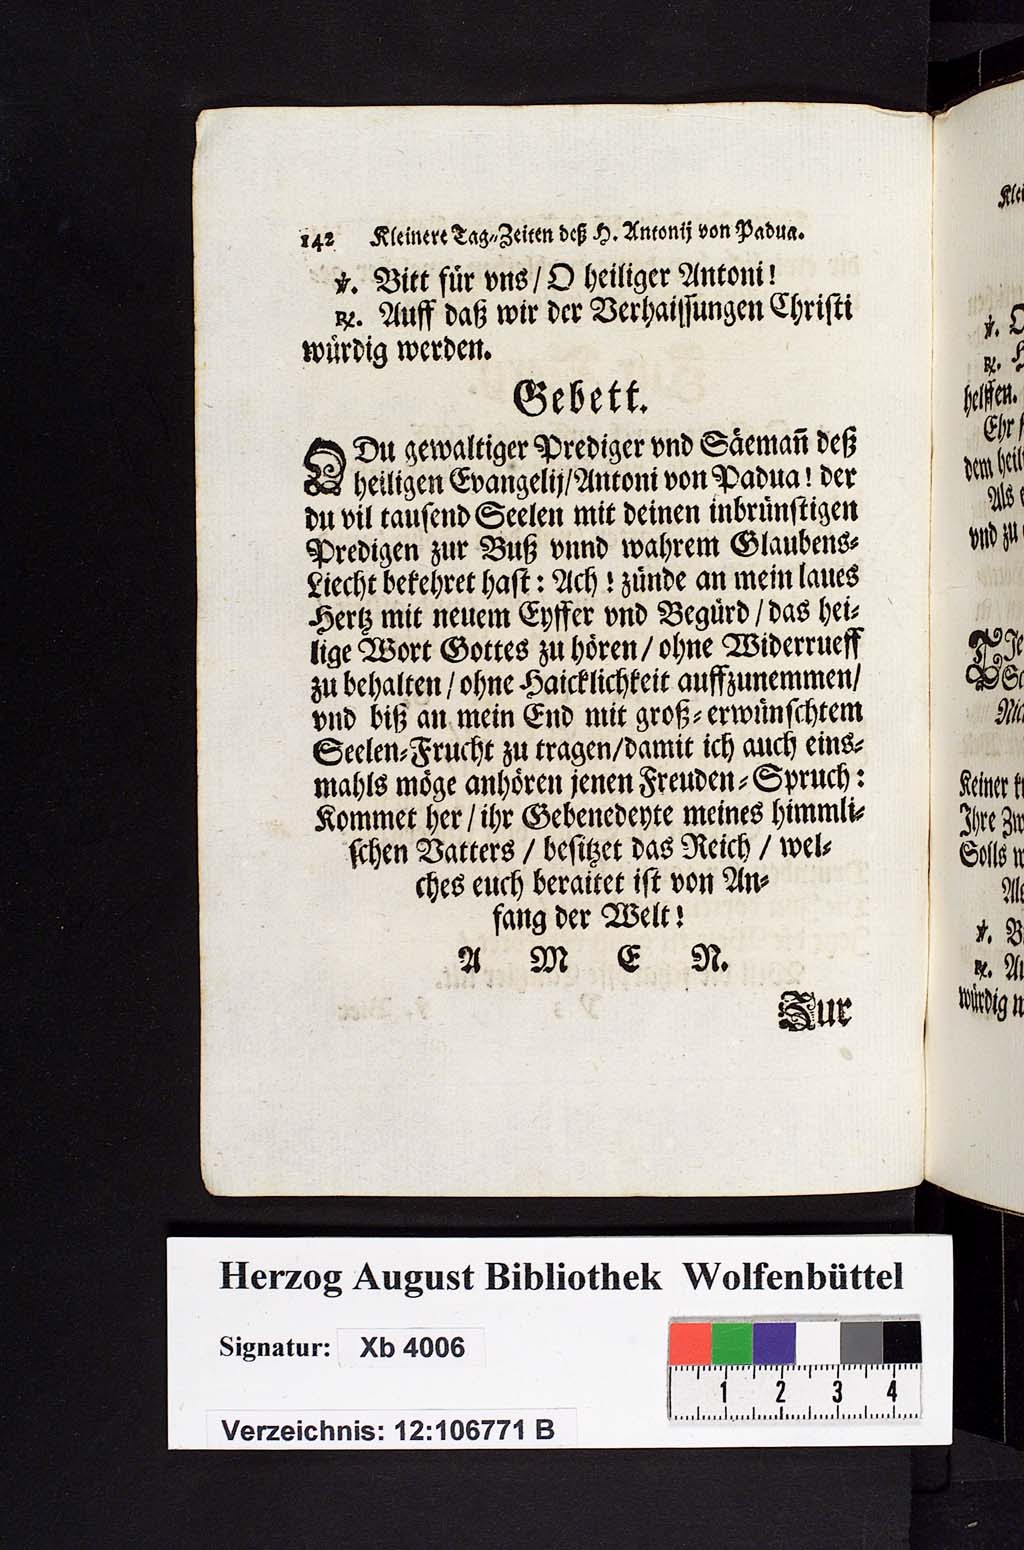 142 Kleinere Tag-Zeiten deß H. Antonij von Padua.
℣. Bitt für vns / O heiliger Antoni!
℟. Auff daß wir der Verhaissungen Christi
würdig werden.
Gebett.
O Du gewaltiger Prediger vnd Säemañ deß
heiligen Evangelij/Antoni von Padua! der
du vil tausend Seelen mit deinen inbrünstigen
Predigen zur Buß vnnd wahrem Glaubens-
Liecht bekehret hast: Ach! zünde an mein laues
Hertz mit neuem Eyffer vnd Begürd / das hei-
lige Wort Gottes zu hören / ohne Widerrueff
zu behalten / ohne Haicklichkeit auffzunemmen/
vnd biß an mein End mit groß-erwünschtem
Seelen-Frucht zu tragen/damit ich auch eins-
mahls möge anhören jenen Freuden-Spruch:
Kommet her / ihr Gebenedeyte meines himmli-
schen Vatters / besitzet das Reich / wel-
ches euch beraitet ist von An-
fang der Welt!
A M E N.
Zur
Klei
℣. O
℟. H
helffen.
Ehr
dem heil
Als
vnd zu
Je
Nic
Keiner
Ihre Zw
Solls
℣. B
℟. Au
würdig
Herzog August Bibliothek Wolfenbüttel
Signatur: Xb 4006
1 2 3 4
Verzeichnis: 12:106771 B